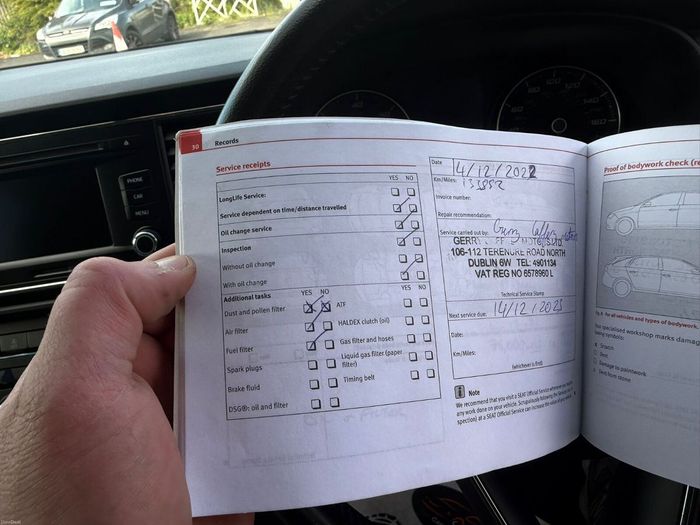 30 Records
Service receipts
YES NO
LongLife Service:
Service dependent on time/distance travelled
Oil change service
Inspection
Without oil change
With oil change
Additional tasks YES NO YES NO
Dust and pollen filter ATF
Air filter HALDEX clutch (oil)
Fuel filter Gas filter and hoses
Spark plugs Liquid gas filter (paper filter)
Brake fluid Timing belt
DSG®: oil and filter
Date 14/12/2022
Km/Miles:
Invoice number:
Repair recommendation:
Service carried out by:
106-112 TERENURE ROAD NORTH
DUBLIN 6W TEL: 4901134
VAT REG NO 6578960 L
Technical Service Stamp
Next service due: 14/12/2023
Date:
Km/Miles:
(whichever is first)
Note
We recommend that you visit a SEAT Official Service whenever you
any work done on your vehicle. Scrupulously following the
spection) at a SEAT Official Service can increase the value of
Proof of bodywork check
For all vehicles and types of bodywork
specialised workshop marks
Dent
Damage to paintwork
PHONE
CAR
MENU